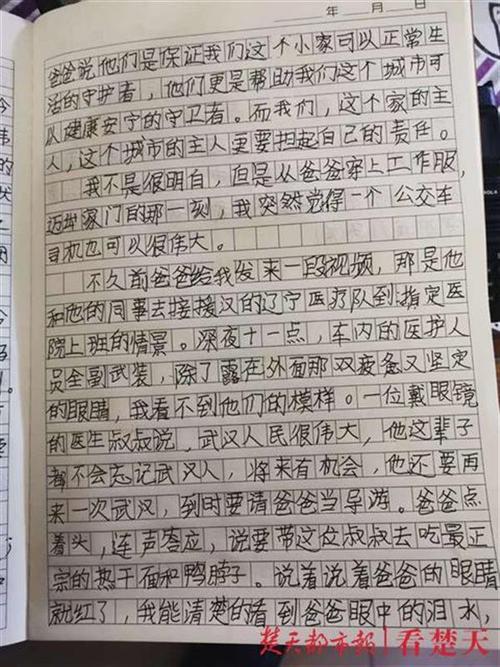 年 月 日
爸爸说他们是保证我们这个小家可以正常生
活的守护者，他们更是帮助我们这个城市可
以健康安宁的守卫者。而我们，这个家的主
人，这个城市的主人更要担起自己的责任。
我不是很明白，但是从爸爸穿上工作服，
迈出家门的那一刻，我突然觉得一个公交车
司机也可以很伟大。
不久前爸爸给我发来一段视频，那是他
和他的同事去接援汉的辽宁医疗队到指定医
院上班的情景。深夜十一点，车内的医护人
员全副武装，除了露在外面那双疲惫又坚定
的眼睛，我看不到他们的模样。一位戴眼镜
的医生叔叔说，武汉人民很伟大，他这辈子
都不会忘记武汉人，将来有机会，他还要再
来一次武汉，到时要请爸爸当导游。爸爸点
着头，连声答应，说要带这位叔叔去吃最正
宗的热干面和鸭脖子。说着说着爸爸的眼睛
就红了，我能清楚的看到爸爸眼中的泪水，
楚天都市报 看楚天